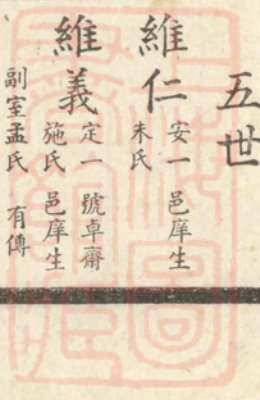 五世
維仁
安一 邑庠生
朱氏
維義
定一 號卓齋
施氏 邑庠生
副室孟氏 有傳